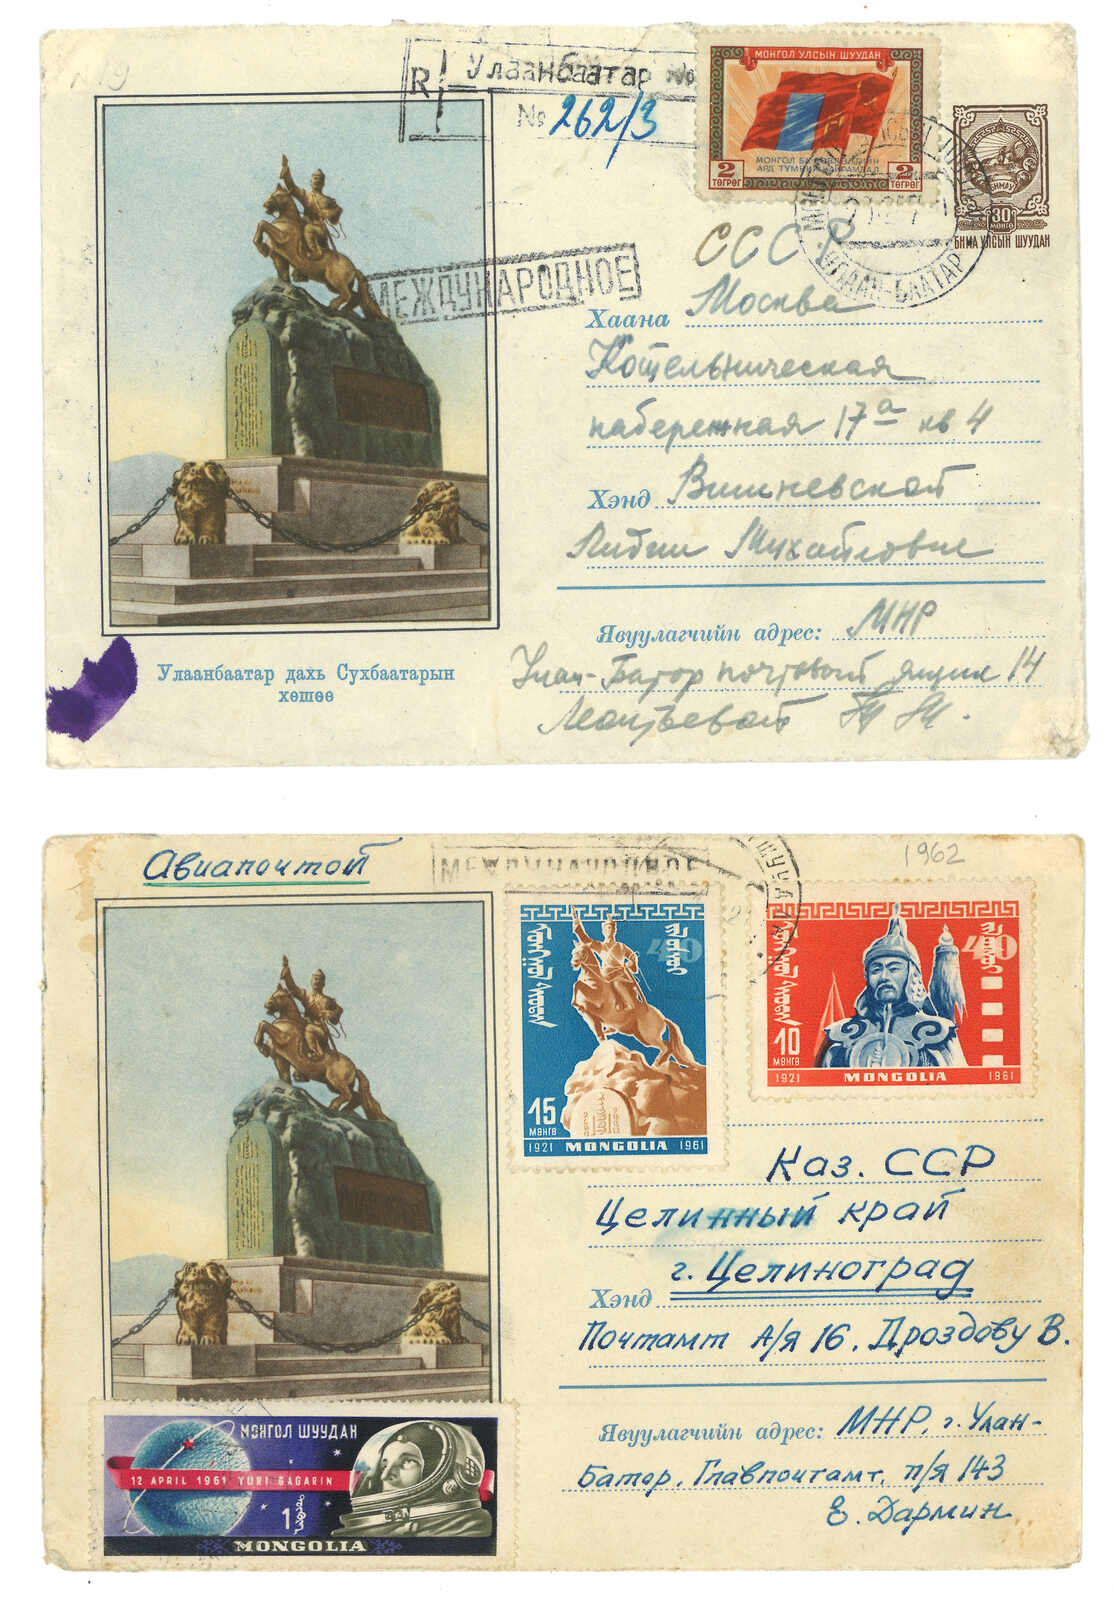 R
Улаанбаатар №
№ 262/3
МОНГОЛ УЛСЫН ШУУДАН
АРД ТҮМНИЙ НАЙРАМДАЛ
2
ТӨГРӨГ
2
ТӨГРӨГ
БНМАУ
30
МӨНГӨ
БНМАУЛСЫН ШУУДАН
УЛААН-БААТАР
МЕЖДУНАРОДНОЕ
СССР
Хаана Москва
Котельническая
набережная 17а кв 4
Хэнд Вишневской
Лидии Михайловне
Явуулагчийн адрес: МНР
Улан-Батор почтовый ящик 14
Леонтьевой
Улаанбаатар дахь Сүхбаатарын
хөшөө
Авиапочтой
МЕЖДУНАРОДНОЕ
1962
40
15
МӨНГӨ
1921 MONGOLIA 1961
40
10
МӨНГӨ
1921 MONGOLIA 1961
Каз. ССР
Целинный край
г. Целиноград
Хэнд
Почтамт А/Я 16. Дроздову В.
Явуулагчийн адрес: МНР, г. Улан-
Батор, Главпочтамт, п/я 143
Е. Дармин
МОНГОЛ ШУУДАН
12 APRIL 1961 YURI GAGARIN
1
MONGOLIA